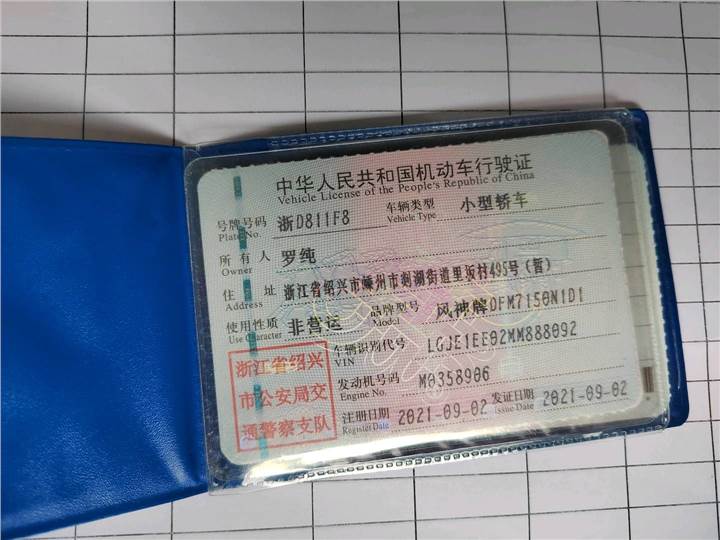 中华人民共和国机动车行驶证
Vehicle License of the People's Republic of China
号牌号码 浙D811F8 车辆类型 小型轿车
Plate No. Vehicle Type
所有人 罗纯
Owner
住址 浙江省绍兴市嵊州市剡湖街道里坂村495号(暂)
Address
使用性质 非营运 品牌型号 风神牌DFM7150N1D1
Use Character Model
浙江省绍兴
市公安局交
通警察支队
车辆识别代号 LGJE1EE02MM888092
VIN
发动机号码 M0358906
Engine No.
注册日期 2021-09-02 发证日期 2021-09-02
Register Date Issue Date